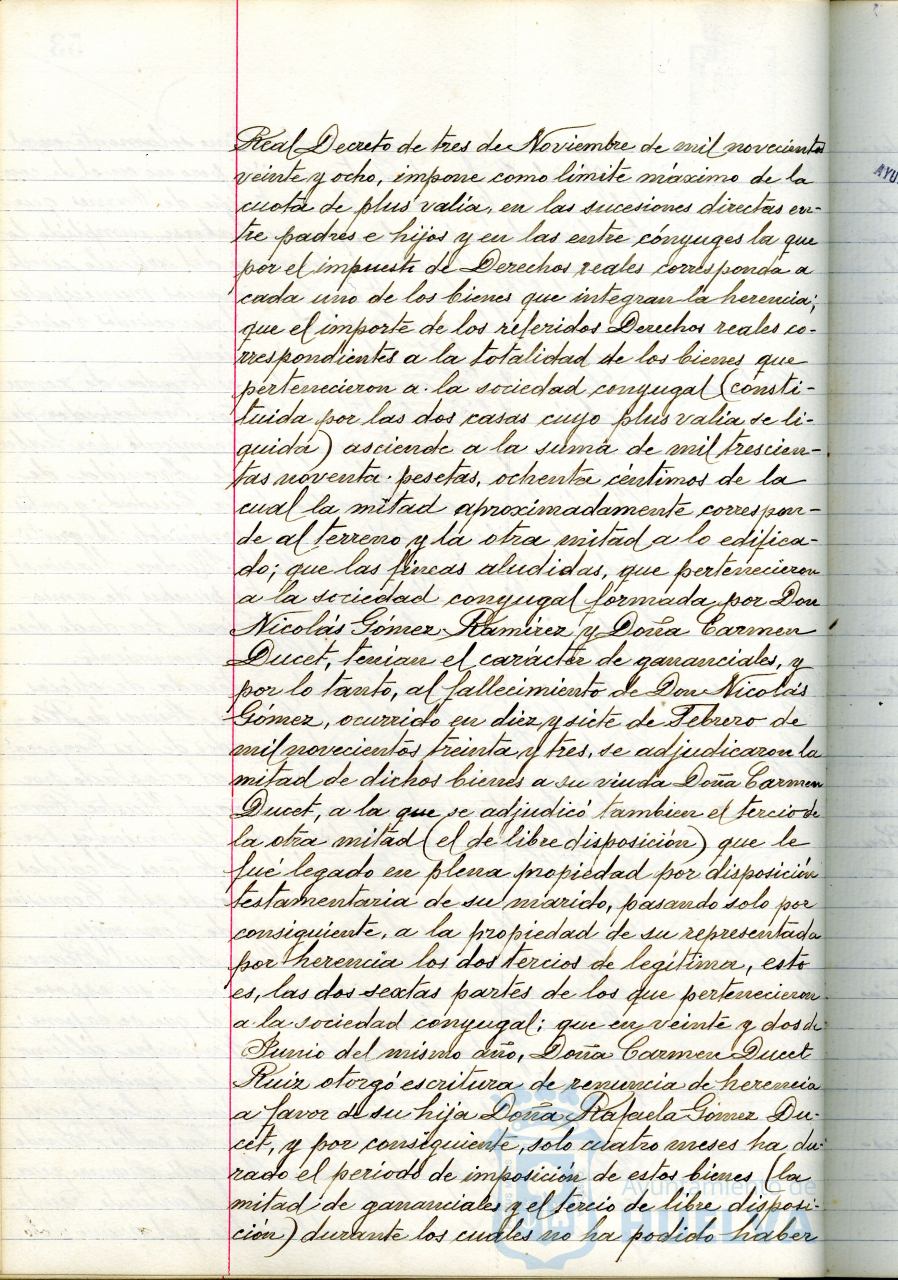 Real Decreto de tres de Noviembre de mil novecientos
veinte y ocho, impone como límite máximo de la
cuota de plus valía, en las sucesiones directas en-
tre padres e hijos y en las entre cónyuges la que
por el impuesto de Derechos reales corresponda a
cada uno de los bienes que integran la herencia;
que el importe de los referidos Derechos reales co-
rrespondientes a la totalidad de los bienes que
pertenecieron a la sociedad conyugal (consti-
tuida por las dos casas cuyo plus valía se li-
quida) asciende a la suma de mil trescien-
tas noventa pesetas, ochenta céntimos de la
cual la mitad aproximadamente correspon-
de al terreno y la otra mitad a lo edifica-
do; que las fincas aludidas, que pertenecieron
a la sociedad conyugal formada por Don
Nicolás Gómez Ramírez y Doña Carmen
Ducet, tenían el carácter de gananciales, y
por lo tanto, al fallecimiento de Don Nicolás
Gómez, ocurrido en diez y siete de Febrero de
mil novecientos treinta y tres, se adjudicaron la
mitad de dichos bienes a su viuda Doña Carmen
Ducet, a la que se adjudicó tambien el tercio de
la otra mitad (el de libre disposición) que le
fué legado en plena propiedad por disposición
testamentaria de su marido, pasando solo por
consiguiente, a la propiedad de su representada
por herencia los dos tercios de legítima, esto
es, las dos sextas partes de los que pertenecieron
a la sociedad conyugal; que en veinte y dos de
Junio del mismo año, Doña Carmen Ducet
Ruiz otorgó escritura de renuncia de herencia
a favor de su hija Doña Rafaela Gómez Du-
cet, y por consiguiente, solo cuatro meses ha du-
rado el periodo de imposición de estos bienes (la
mitad de gananciales y el tercio de libre disposi-
ción) durante los cuales no ha podido haber
Ayuntamiento de
HUELVA
AYU